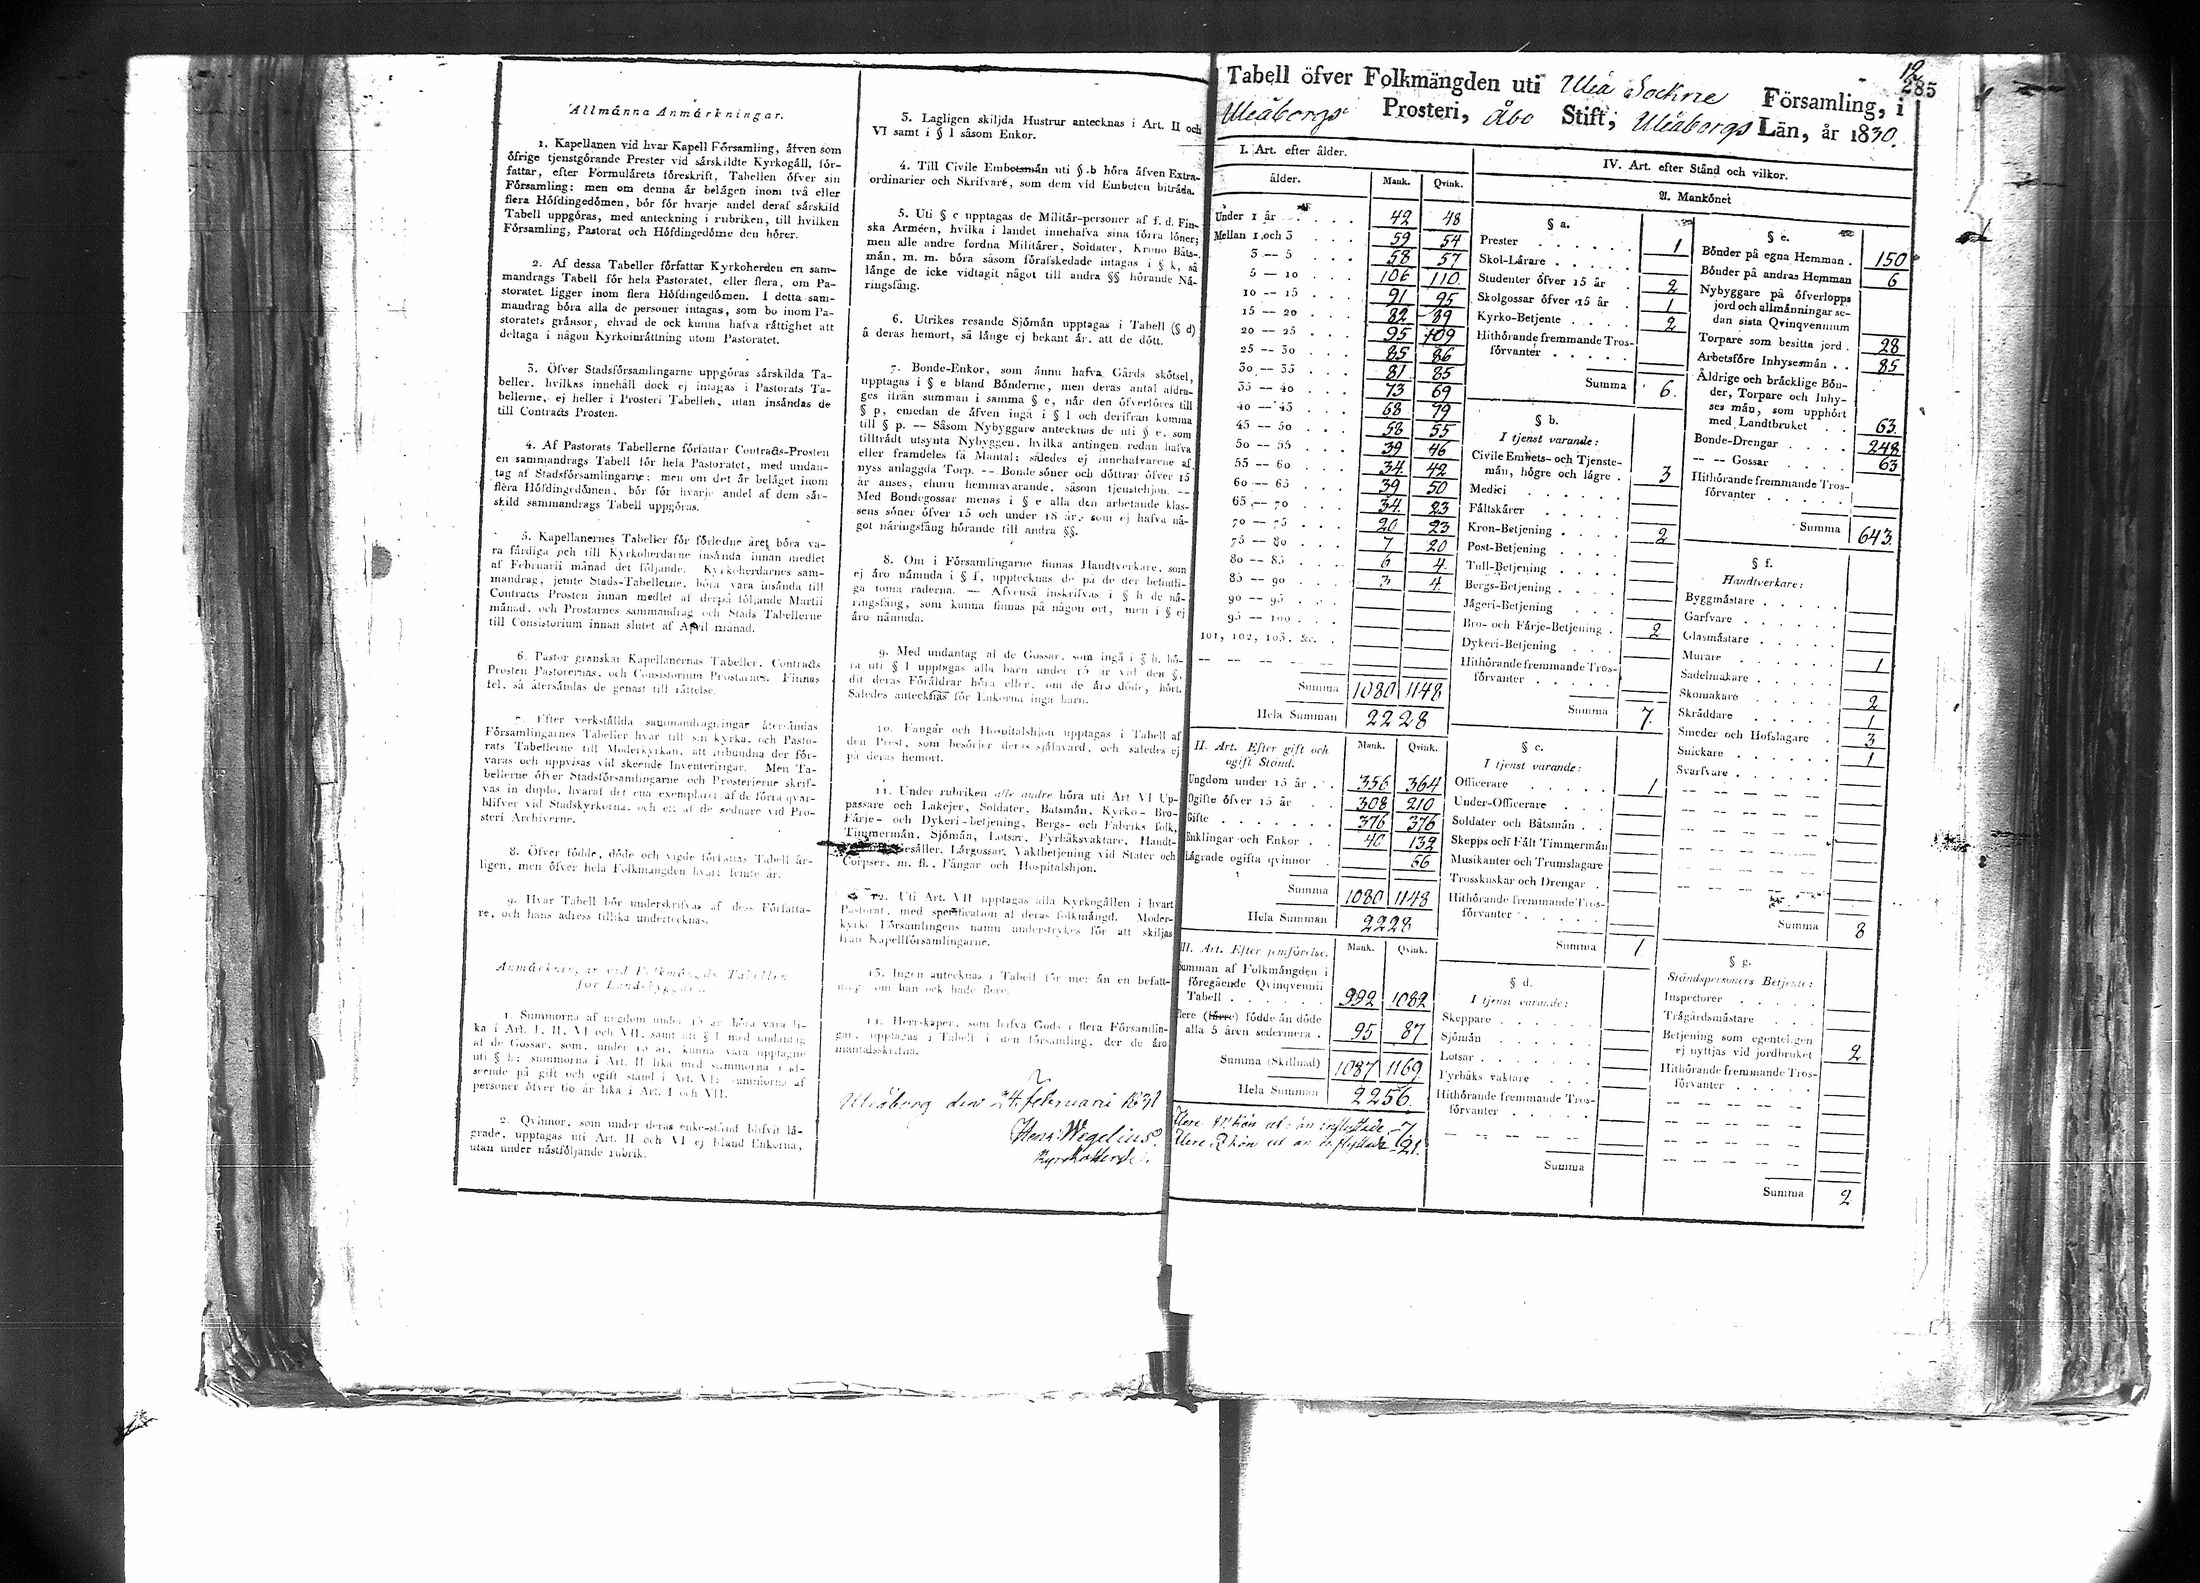 Allmånna Anmårkningar.
1. Kapellanen vid hvar Kapell Församling, åfven som
öfrige tjenstgörande Prester vid sårskildte Kyrkogåll, för-
fattar, efter Formulårets föreskrift, Tabellen öfver sin
Församling; men om denna år belågen inom två eller
flera Höfdingedömen, bör för hvarje andel deraf sårskild
Tabell uppgöras, med anteckning i rubriken, till hvilken
Församling, Pastorat och Höfdingedöme den hörer.
2. Af dessa Tabeller författar Kyrkoherden en sam-
mandrags Tabell för hela Pastoratet, eller flera, om Pa-
storatet ligger inom flera Höfdingedömen. I detta sam-
mandrag böra alla de personer intagas, som bo inom Pa-
storatets grånsor, ehvad de ock kunna hafva råttighet att
deltaga i någon Kyrkoinråttning utom Pastoratet.
3. Öfver Stadsförsamlingarne uppgöras sårskilda Ta-
beller, hvilkas innehåll dock ej intages i Pastorats Ta-
bellerne, ej heller i Prosteri Tabellen, utan insåndas de
till Contracts Prosten.
4. Af Pastorats Tabellerne författar Contracts-Prosten
en sammandrags Tabell för hela Pastoratet, med undan-
tag af Stadsförsamlingarne; men om det år belåget inom
flera Höfdingedömen, bör för hvarje andel af dem sår-
skild sammandrags Tabell uppgöras.
5. Kapellanernes Tabeller för förledne året böra va-
ra fårdiga och till Kyrkoherdarne insånda innan medlet
af Februarii månad det följande. Kyrkoherdarnes sam-
mandrag, jemte Stads-Tabellerne, böra vara insånda till
Contracts Prosten innan medlet af derpå följande Martii
månad, och Prostarnes sammandrag och Stads Tabellerne
till Consistorium innan slutet af April månad.
6. Pastor granskar Kapellanernas Tabeller, Contracts
Prosten Pastorernas, och Consistorium Prostarnes. Finnas
fel, så återsåndas de genast till råttelse.
7. Efter verkstållda sammandragningar återsåndas
Församlingarnes Tabeller hvar till sin kyrka, och Pasto-
rats Tabellerne till Moderkyrkan, att inbundna der för-
varas och uppvisas vid skeende Inventeringar. Men Ta-
bellerne öfver Stadsförsamlingarne och Prosterierne skrif-
vas in duplo, hvaraf det ena exemplaret af de förra qvar-
blifver vid Stadskyrkorna, och ett af de sednare vid Pro-
steri Archiverne.
8. Öfver födde, döde och vigde författas Tabell år-
ligen, men öfver hela Folkmångden hvart femte år.
9. Hvar Tabell bör underskrifvas af dess Författa-
re, och hans adress tillika undertecknas.
Anmårkningar vid Folkmångds Tabellen
för Landsbyggden.
1. Summorna af ungdom under 15 år böra vara li-
ka i Art. I, II, VI och VII, samt uti § l med undantag
af de Gossar, som, under 15 år, kunna vara upptagne
uti § h; summorna i Art. II lika med summorna i af-
seende på gift och ogift stånd i Art. VI; summorna af
personer öfver 60 år lika i Art. I och VII.
2. Qvinnor, som under deras enke-stånd blifvit lå-
grade, upptagas uti Art. II och VI ej bland Enkorna,
utan under nåstföljande rubrik.
3. Lagligen skiljda Hustrur antecknas i Art. II och
VI samt i § l såsom Enkor.
4. Till Civile Embetsmån uti § b höra åfven Extra-
ordinarier och Skrifvare, som dem vid Embeten bitråda.
5. Uti § c upptagas de Militår-personer af f. d. Fin-
ska Arméen, hvilka i landet innehafva sina förra löner;
men alle andre fordna Militårer, Soldater, Krono Båts-
mån, m. m. böra såsom förafskedade intagas i § k, så
långe de icke vidtagit något till andra §§ hörande Nå-
ringsfång.
6. Utrikes resande Sjömån upptagas i Tabell (§ d)
å deras hemort, så långe ej bekant år, att de dött.
7. Bonde-Enkor, som ånnu hafva Gårds skötsel,
upptagas i § e bland Bönderne, men deras antal afdra-
ges ifrån summan i samma § e, når den öfverföres till
§ p, emedan de åfven ingå i § l och derifrån komma
till § p. — Såsom Nybyggare antecknas de uti § e, som
tilltrådt utsynta Nybyggen, hvilka antingen redan hafva
eller framdeles få Mantal; således ej innehafvarene af
nyss anlaggda Torp. — Bonde söner och döttrar öfver 15
år anses, ehuru hemmavarande, såsom tjenstehjon. —
Med Bondegossar menas i § e alla den arbetande klas-
sens söner öfver 15 och under 18 år, som ej hafva nå-
got nåringsfång hörande till andra §§.
8. Om i Församlingarne finnas Handtverkare, som
ej åro nåmnda i § f, upptecknas de på de der befintli-
ga toma raderna. — Afvenså inskrifvas i § h de nå-
ringsfång, som kunna finnas på någon ort, men i § ej
åro nåmnda.
9. Med undantag af de Gossar, som ingå i § h, bö-
ra uti § l upptagas alla barn under 15 år vid den §,
dit deras Föråldrar höra eller, om de åro döde, hört.
Således antecknas för Enkorna inga barn.
10. Fångar och Hospitalshjon upptagas i Tabell af
den Prest, som besörjer deras sjålavård, och således ej
på deras hemort.
11. Under rubriken alle andre höra uti Art VI Up-
passare och Lakejer, Soldater, Båtsmån, Kyrko- Bro-
Fårje- och Dykeri-betjening, Bergs- och Fabriks folk,
Timmermån, Sjömån, Lotsar, Fyrbåksvaktare, Handt-
Gesåller, Lårgossar, Vaktbetjening vid Stater och
Corpser, m. fl., Fångar och Hospitalshjon.
12. Uti Art. VII upptagas alla Kyrkogållen i hvart
Pastorat, med specifikation af deras folkmångd. Moder-
kyrko Församlingens namn understrykes för att skiljas
från Kapellförsamlingarne.
13. Ingen antecknas i Tabell för mer ån en befatt-
ning, om han ock hade flere.
14. Herrskaper, som hafva Gods i flera Församlin-
gar, upptagas i Tabell i den församling, der de åro
mantalsskrifna.
Uleåborg den 24 februarii 1831
Henr: Wegelius
Kyrkoherde.
12
285
Tabell öfver Folkmängden uti Uleå Sockne Församling, i
Uleåborgs Prosteri, Åbo Stift, Uleåborgs Län, år 1830.
I. Art. efter ålder.
ålder. Mank. Qvink.
Under 1 år . . . . 42 48
Mellan 1 och 3 . . . 59 54
3 — 5 . . . 58 57
5 — 10 . . . 106 110
10 — 15 . . . 91 95
15 — 20 . . . 82 89
20 — 25 . . . 95 109
25 — 30 . . . 85 86
30 — 35 . . . 81 85
35 — 40 . . . 73 69
40 — 45 . . . 68 79
45 — 50 . . . 58 55
50 — 55 . . . 39 46
55 — 60 . . . 34 42
60 — 65 . . . 39 50
65 — 70 . . . 34 23
70 — 75 . . . 20 23
75 — 80 . . . 7 20
80 — 85 . . . 6 4
85 — 90 . . . 3 4
90 — 95 . . .
95 — 100 . . .
101, 102, 103, &c. .
Summa 1080 1148
Hela Summan 2228
II. Art. Efter gift och
ogift Stånd. Mank. Qvink.
Ungdom under 15 år . . 356 364
Ogifte öfver 15 år . . 308 210
Gifte . . . . . . . 376 376
Enklingar och Enkor . 40 132
Lågrade ogifta qvinnor 66
Summa 1080 1148
Hela Summan 2228
III. Art. Efter jemförelse. Mank. Qvink.
Summan af Folkmångden i
föregående Qvinqvennii
Tabell . . . . . 992 1082
flere (fårre) födde ån döde
alla 5 åren sedermera . 95 87
Summa (Skillnad) 1087 1169
Hela Summan 2256.
flere Mkön ut- ån inflyttade -7
flere Qkön ut än inflyttade -21.
IV. Art. efter Stånd och vilkor.
A. Mankönet
§ a.
Prester . . . . . . 1
Skol-Lårare . . . . .
Studenter öfver 15 år . 2
Skolgossar öfver 15 år . 1
Kyrko-Betjente . . . . 2
Hithörande fremmande Tros-
förvanter . . . . .
Summa 6.
§ b.
I tjenst varande:
Civile Embets- och Tjenste-
mån, högre och lågre . 3
Medici . . . . . .
Fåltskårer . . . . .
Kron-Betjening . . . . 2
Post-Betjening . . . .
Tull-Betjening . . . .
Bergs-Betjening . . . .
Jågeri-Betjening . . .
Bro- och Fårje-Betjening . 2
Dykeri-Betjening . . .
Hithörande fremmande Tros-
förvanter . . . . .
Summa 7.
§ c.
I tjenst varande:
Officerare . . . . . 1
Under-Officerare . . .
Soldater och Båtsmån . .
Skepps och Fålt Timmermån
Musikanter och Trumslagare
Trosskuskar och Drengar .
Hithörande fremmande Tros-
förvanter . . . . .
Summa 1
§ d.
I tjenst varande:
Skeppare . . . . . .
Sjömån . . . . . .
Lotsar . . . . . . .
Fyrbåks vaktare . . .
Hithörande fremmande Tros-
förvanter . . . . .
Summa
§ e.
Bönder på egna Hemman . 150
Bönder på andras Hemman 6
Nybyggare på öfverlopps
jord och allmånningar se-
dan sista Qvinqvennium
Torpare som besitta jord . 28
Arbetsföre Inhysesmån . . 85
Åldrige och bråcklige Bön-
der, Torpare och Inhy-
ses mån, som upphört
med Landtbruket . . 63
Bonde-Drengar . . . . 248
— — Gossar . . . . 63
Hithörande fremmande Tros-
förvanter . . . . .
Summa 643.
§ f.
Handtverkare:
Byggmåstare . . . . .
Garfvare . . . . . .
Glasmåstare . . . . .
Murare . . . . . . 1
Sadelmakare . . . . .
Skomakare . . . . . 2
Skråddare . . . . . 1
Smeder och Hofslagare . 3
Snickare . . . . . . 1
Svarfvare . . . . . .
Summa 8
§ g.
Ståndspersoners Betjente:
Inspectorer . . . . .
Trågårdsmåstare . . .
Betjening som egenteligen
ej nyttjas vid jordbruket 2
Hithörande fremmande Tros-
förvanter . . . . .
Summa 2